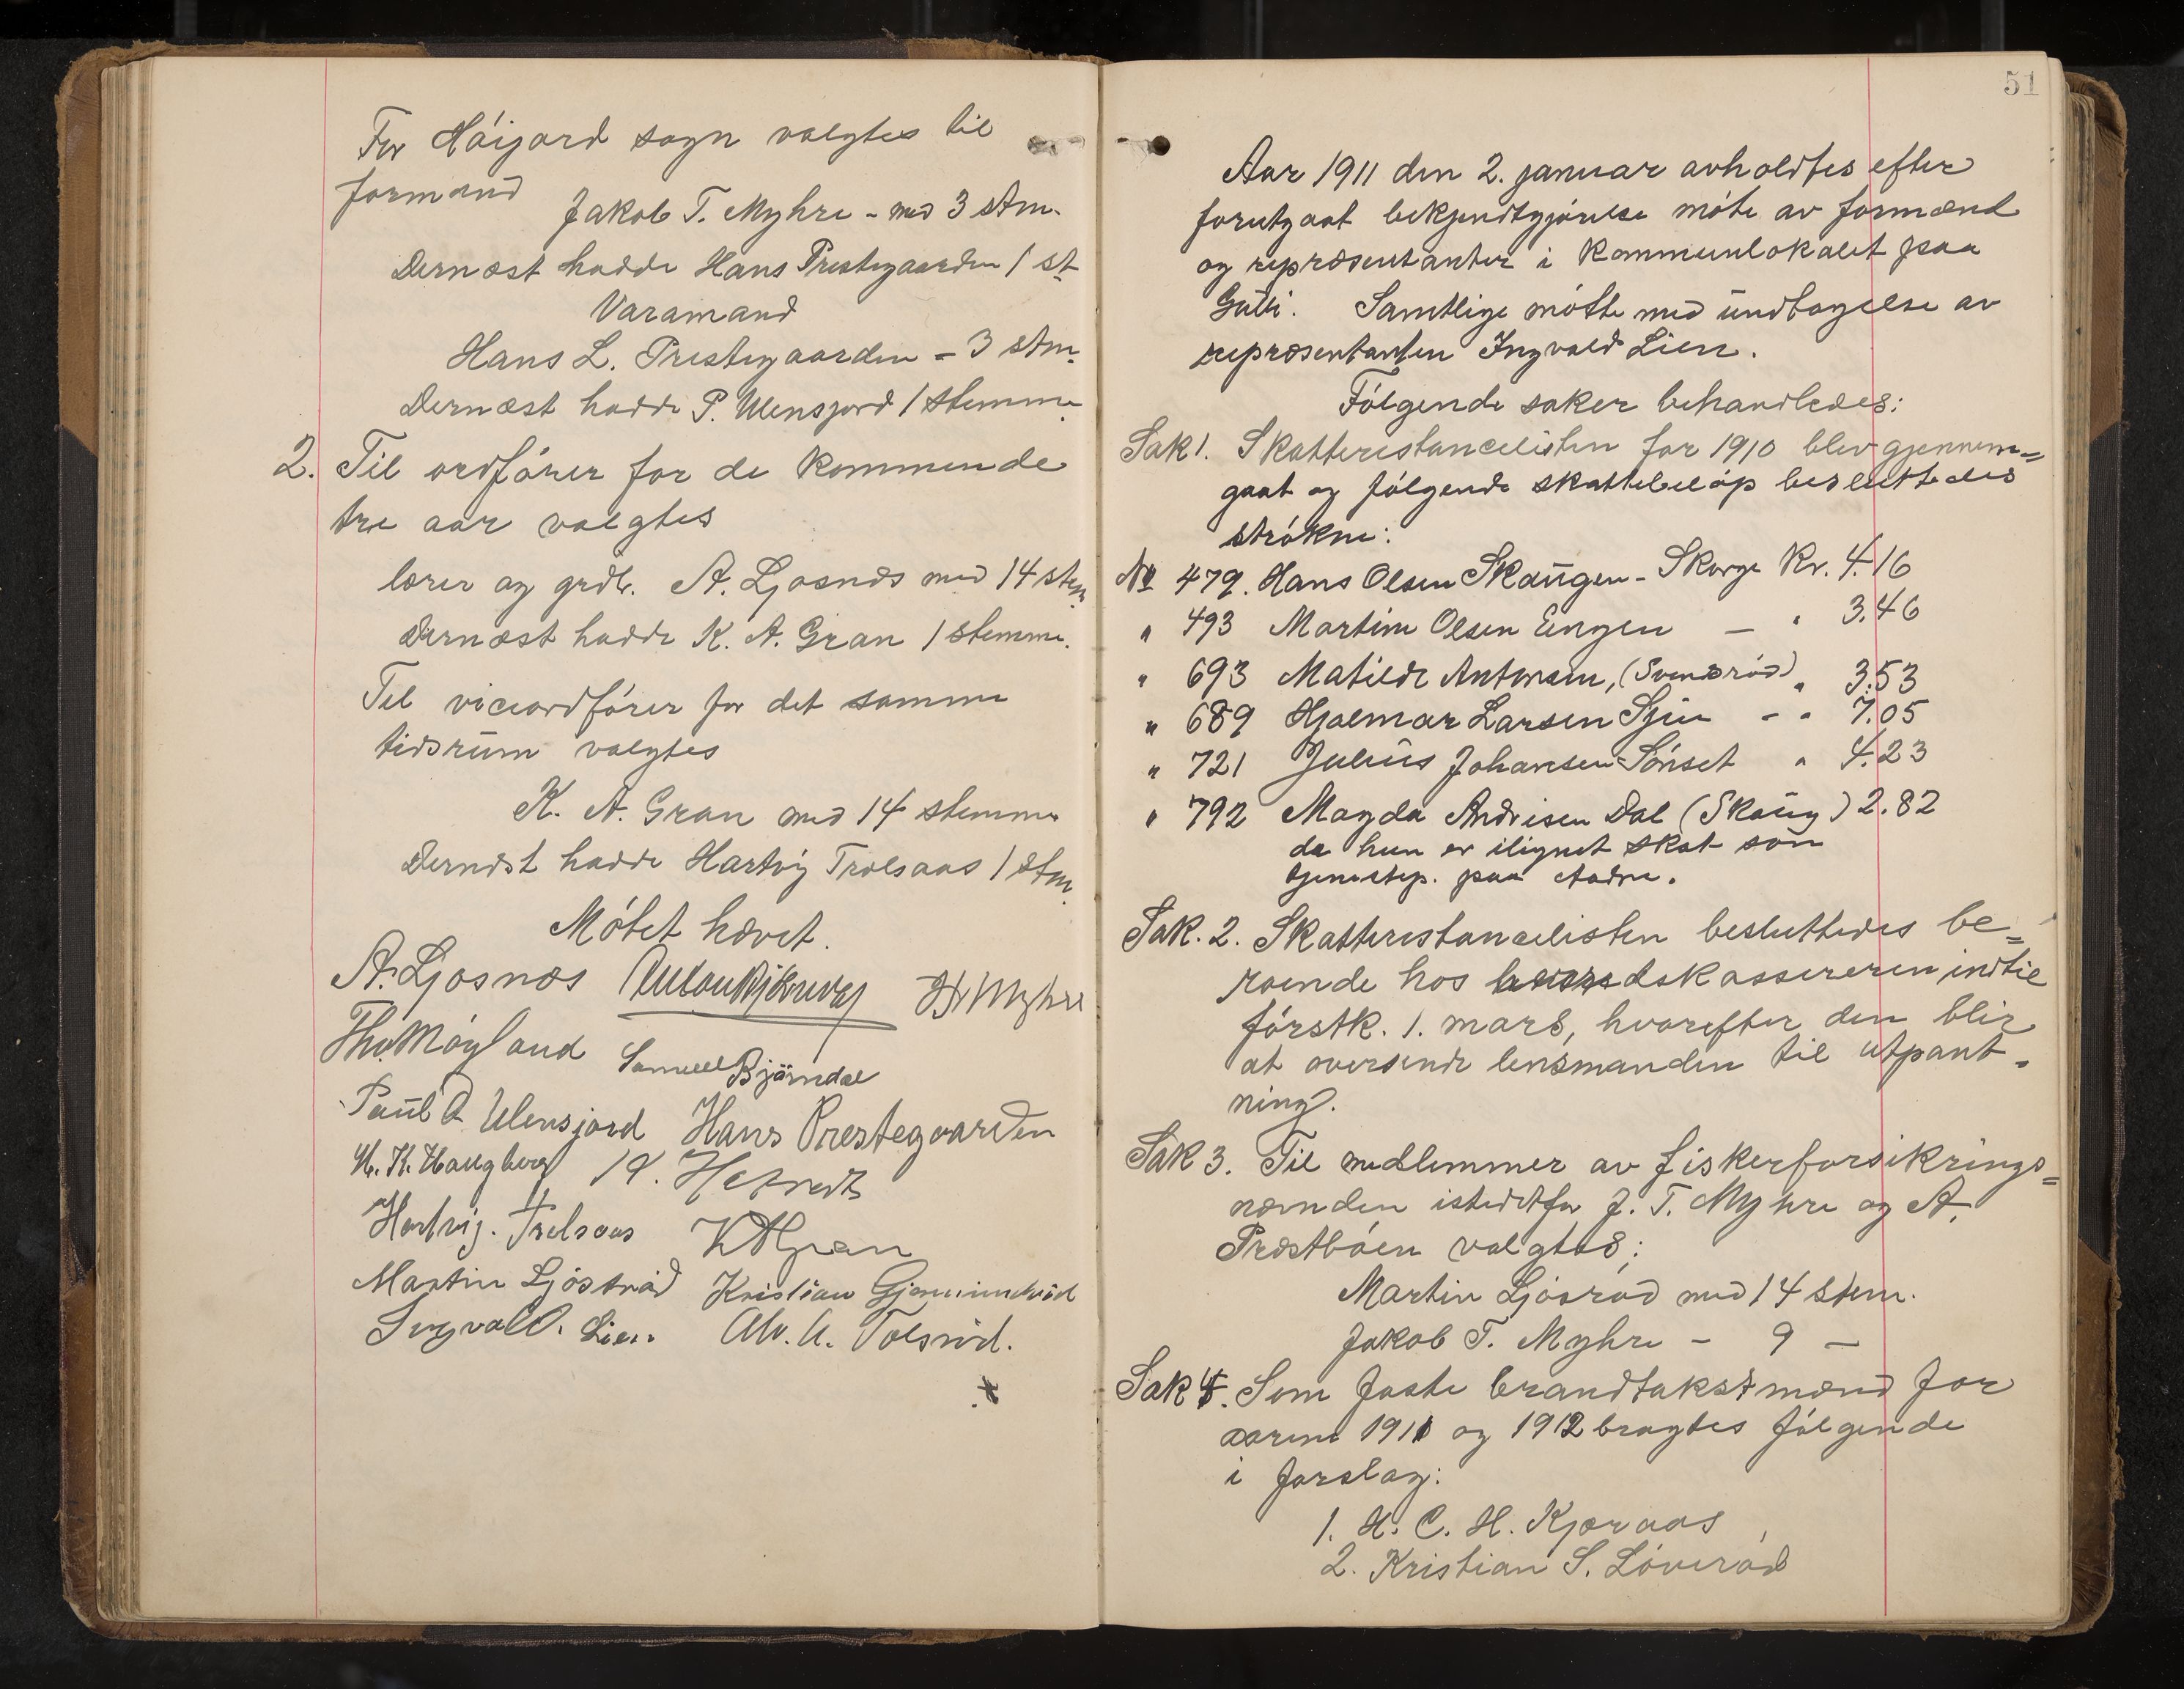 For Höijord sogn valgtes til
formand
Jakob T. Myhre - med 3 stm.
Dernæst hadde Hans Prestegaarden 1 st
Varamand
Hans L. Prestegaarden - 3 stm.
Dernæst hadde P. Ulensjord 1 stemme
2. Til ordförer for de kommende
tre aar valgtes
lærer og grdb. A. Ljosnæs med 14 stem.
Dernæst hadde K. A. Gran 1 stemme.
Til viceordförer for det samme
tidsrum valgtes
K. A. Gran med 14 stemmer
Dernæst hadde Hartvig Trolsaas 1 stm.
Mötet hævet.
A. Ljosnæs Anton J. Myhre
Th. Möyland Samuel Björndal
Paul A. Ulensjord Hans Prestegaarden
K. Haugberg
Hartvig. Trelsaas K A Gran
Martin Ljösröd Kristian
Ingvald. Lien. A. Tolsröd.
51
Aar 1911 den 2. januar avholdtes efter
forutgaat bekjendtgjörelse möte av formænd
og repræsentanter i kommunlokalet paa
Gulli. Samtlige mötte med undtagelse av
repræsentanten Ingvald Lien.
Fölgende saker behandledes:
Sak 1. Skatterestancelisten for 1910 blev gjennem=
gaat og fölgende skattebelöp besluttedes
strökne:
No 479. Hans Olsen Skaugen - Skorge Kr. 4.16
" 493 Martin Olsen Engen — " 3.46
" 693 Matilde Antonsen, (Svendsröd) " 3.53
" 689 Hjalmar Larsen Gjein - " 7.05
" 721 Julius Johansen Sönset " 4.23
" 792 Magda Andreisen Dal (Skaug) 2.82
da hun er ilignet skat som
tjenestep. paa Aadne.
Sak. 2. Skatterestancelisten besluttedes be=
roende hos herredskassereren indtil
förstk. 1. mars, hvorefter den blir
at oversende lensmanden til utpant-
ning.
Sak 3. Til medlemmer av fiskerforsikrings=
nævnden istedetfor J. T. Myhre og A.
Præstbøen valgtes;
Martin Ljösröd med 14 stem.
Jakob T. Myhre - 9 —
Sak 4. Som faste brandtakstmænd for
aarene 1911 og 1912 bragtes fölgende
i forslag:
1. H. C. H. Kjæraas
2. Kristian S. Löveröd